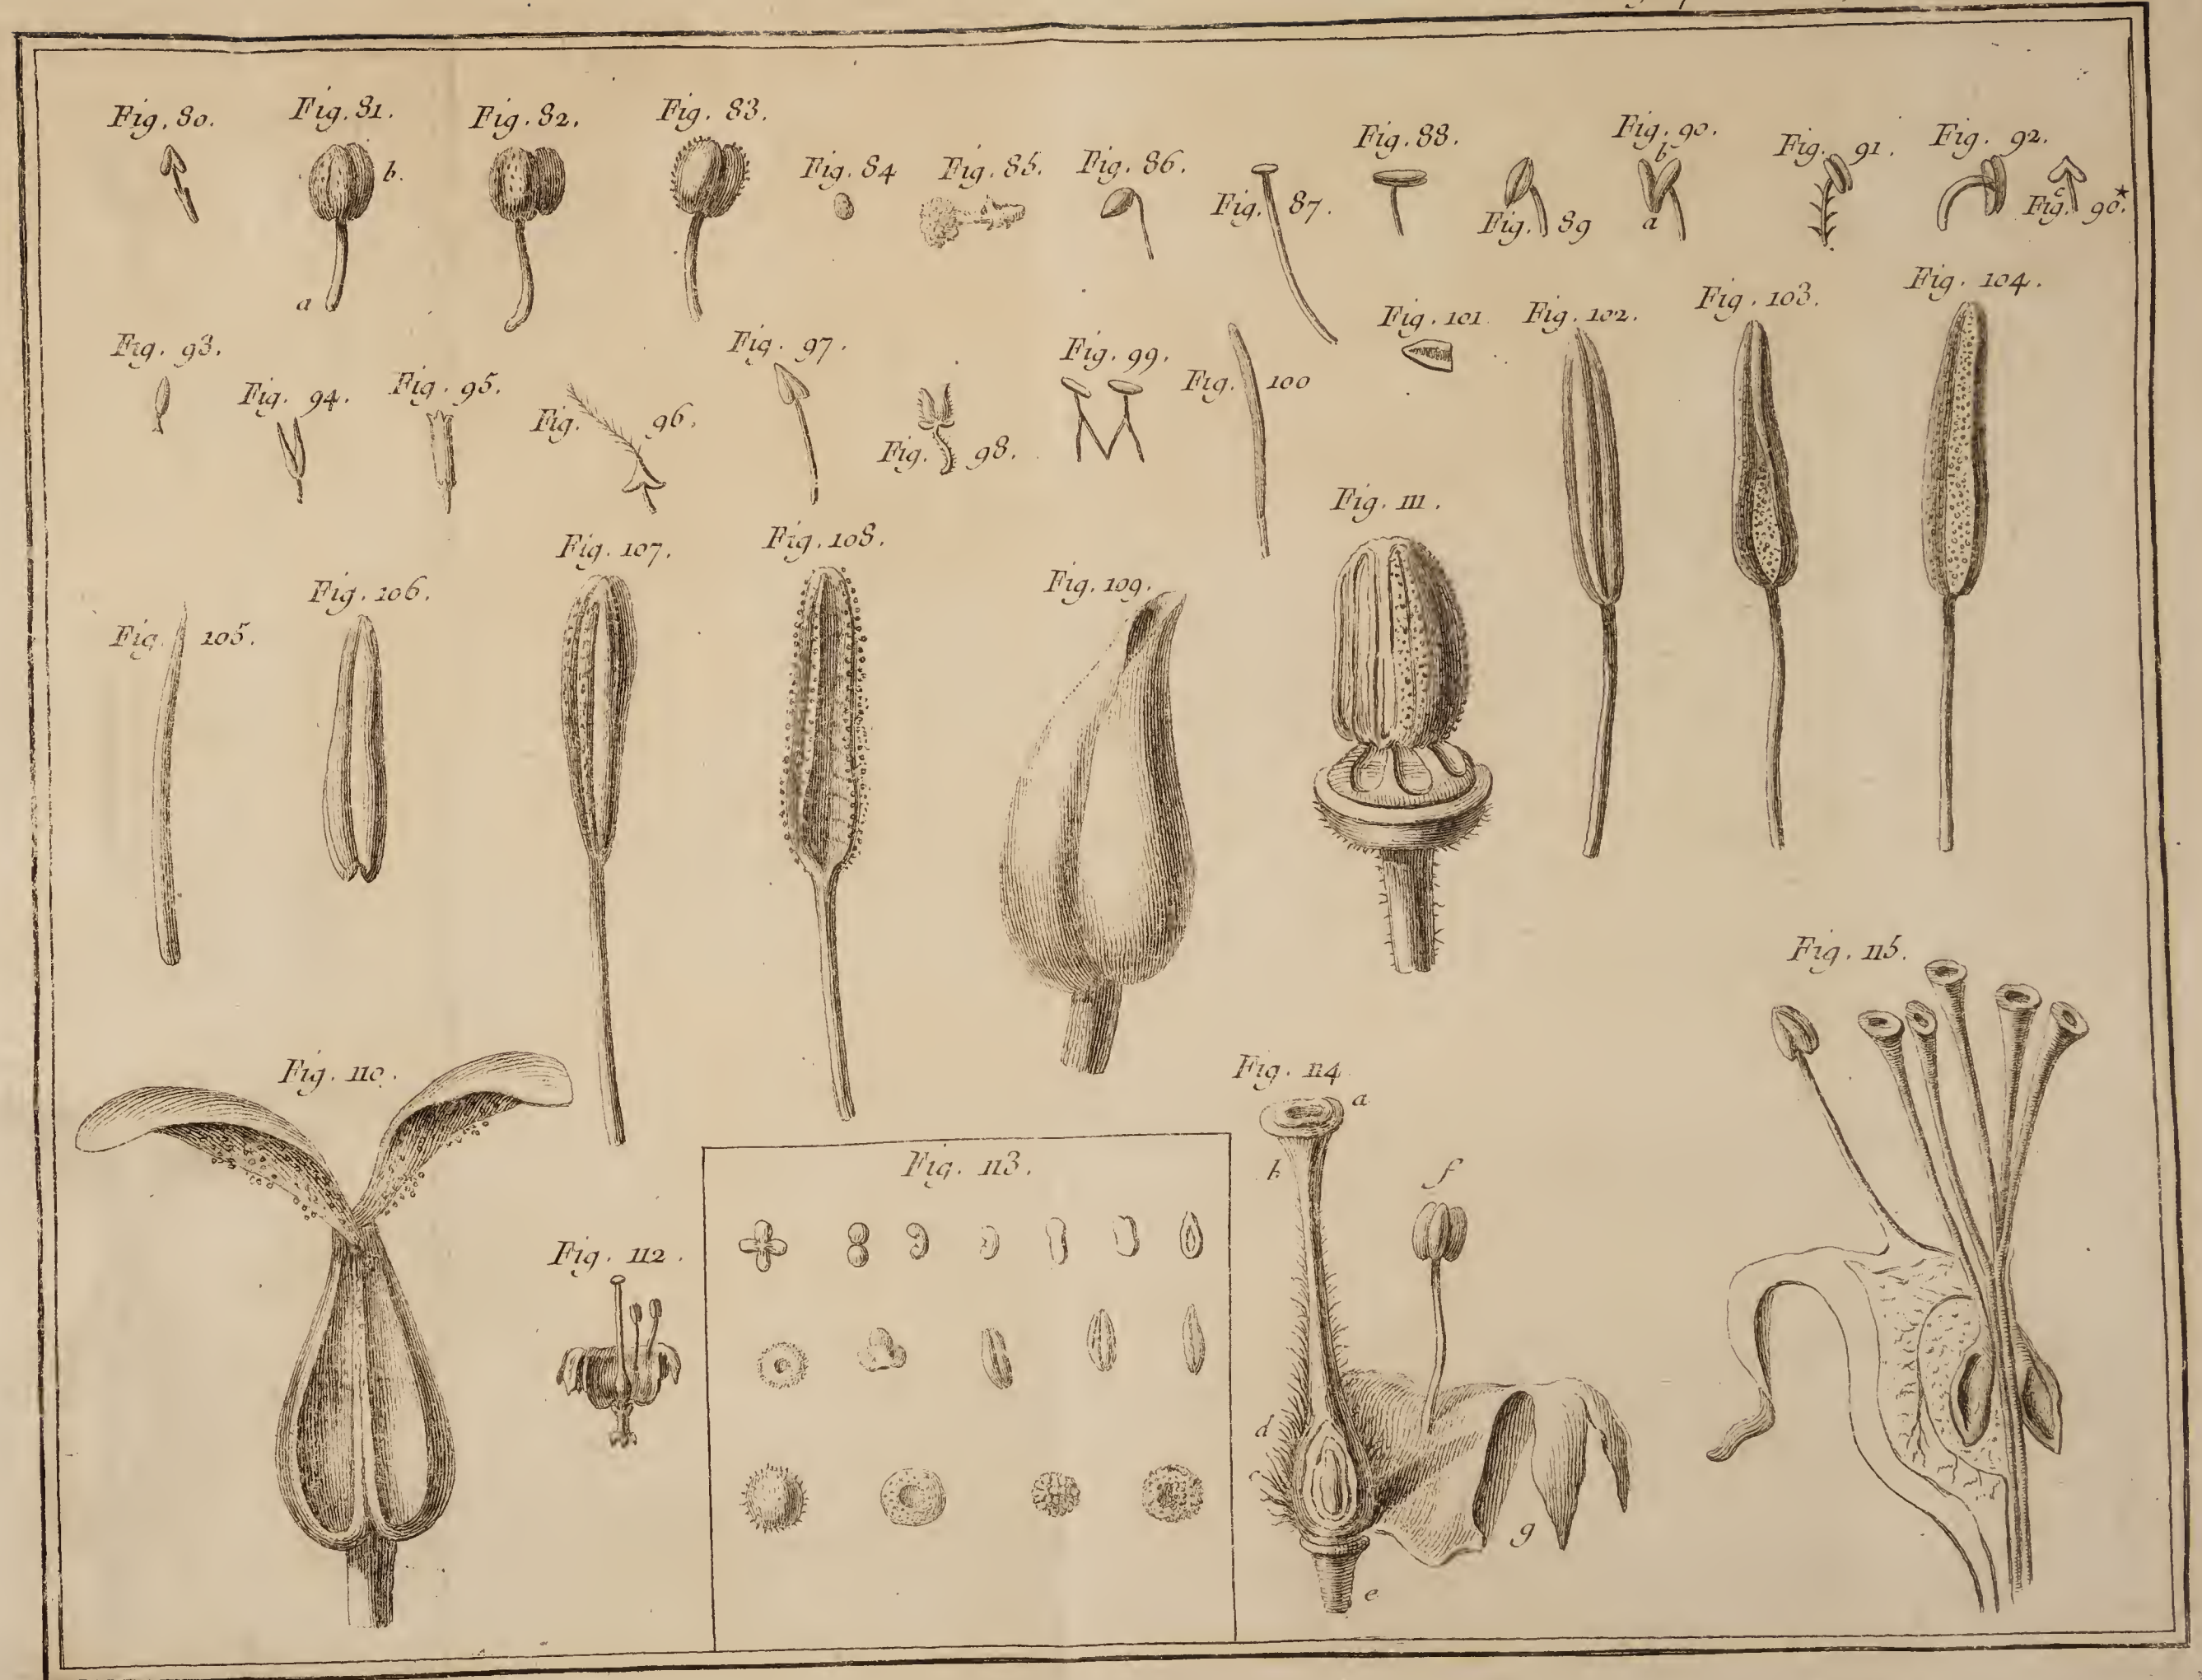 Fig. 80.
Fig. 81.
b.
a
Fig. 82.
Fig. 83.
Fig. 84
Fig. 85.
Fig. 86.
Fig. 87.
Fig. 88.
Fig. 89
Fig. 90.
b
a
Fig. 91.
Fig. 92.
c
Fig. 90.*
Fig. 93.
Fig. 94.
Fig. 95.
Fig. 96.
Fig. 97.
Fig. 98.
Fig. 99.
Fig. 100
Fig. 101.
Fig. 102.
Fig. 103.
Fig. 104.
Fig. 105.
Fig. 106.
Fig. 107.
Fig. 108.
Fig. 109.
Fig. 111.
Fig. 110.
Fig. 112.
Fig. 113.
Fig. 114
a
b
f
d
c
g
e
Fig. 115.